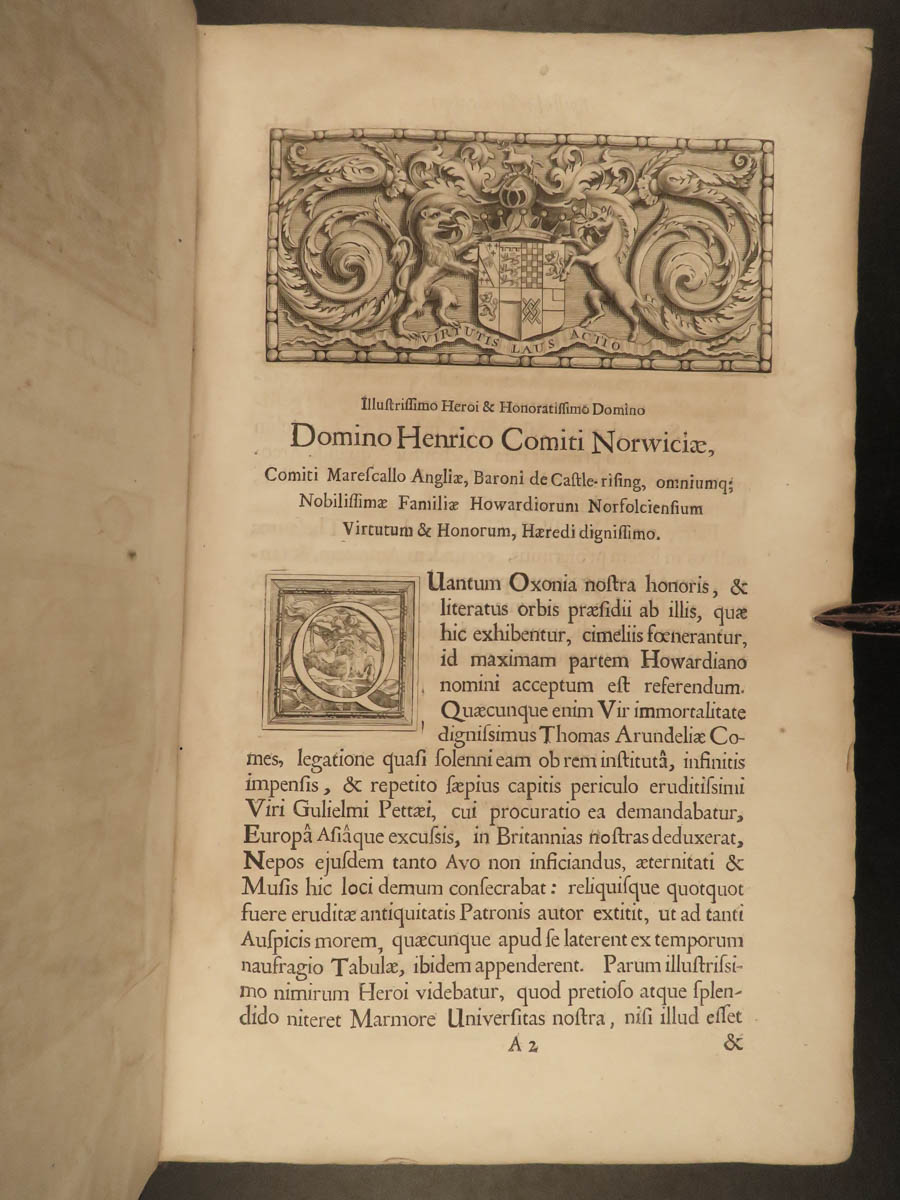 VIRTUTIS LAUS ACTIO
Illuſtriſſimo Heroi & Honoratiſſimo Domino
Domino Henrico Comiti Norwiciæ,
Comiti Mareſcallo Angliæ, Baroni de Caſtle-riſing, omniumq;
Nobiliſſimæ Familiæ Howardiorum Norfolcienſium
Virtutum & Honorum, Hæredi digniſſimo.
QUantum Oxonia noſtra honoris, &
literatus orbis præſidii ab illis, quæ
hic exhibentur, cimeliis fœnerantur,
id maximam partem Howardiano
nomini acceptum eſt referendum.
Quæcunque enim Vir immortalitate
digniſsimus Thomas Arundeliæ Co-
mes, legatione quaſi ſolenni eam ob rem inſtitutâ, infinitis
impenſis, & repetito ſæpius capitis periculo eruditiſsimi
Viri Gulielmi Pettæi, cui procuratio ea demandabatur,
Europâ Aſiâque excuſsis, in Britannias noſtras deduxerat,
Nepos ejuſdem tanto Avo non inficiandus, æternitati &
Muſis hic loci demum conſecrabat: reliquiſque quotquot
fuere eruditæ antiquitatis Patronis autor extitit, ut ad tanti
Auſpicis morem, quæcunque apud ſe laterent ex temporum
naufragio Tabulæ, ibidem appenderent. Parum illuſtriſsi-
mo nimirum Heroi videbatur, quod pretioſo atque ſplen-
dido niteret Marmore Univerſitas noſtra, niſi illud eſſet
A 2 &